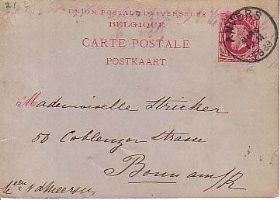 UNION POSTALE UNIVERSELLE
BELGIQUE
CARTE POSTALE
POSTKAART
ANVERS
Mademoiselle Stricker
50 Coblenzer Strasse
Bonn am/R